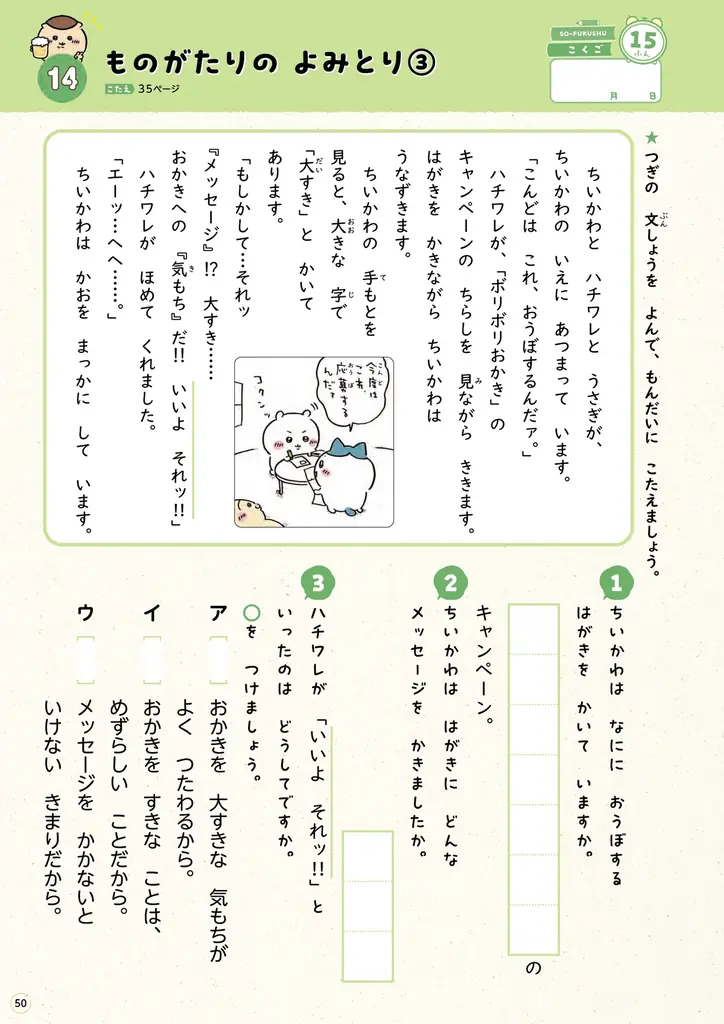 14
ものがたりの よみとり③
こたえ 35ページ
SO-FUKUSHU
こくご
15
ふん
月 日
★つぎの 文しょうを よんで、もんだいに こたえましょう。
ぶん
ちいかわと ハチワレと うさぎが、
ちいかわの いえに あつまって います。
「こんどは これ、おうぼするんだァ。」
ハチワレが、「ポリポリおかき」の
キャンペーンの ちらしを 見ながら ききます。
み
はがきを かきながら ちいかわは
うなずきます。
ちいかわの 手もとを
て
見ると、大きな 字で
おお じ
「大すき」と かいて
だい
あります。
「もしかして…それッ
『メッセージ』!? 大すき……
おかきへの 『気もち』だ!! いいよ それッ!!」
き
ハチワレが ほめて くれました。
「エーッ…へへ……。」
ちいかわは かおを まっかに して います。
今度は
こんど
これ、
応募する
おうぼ
んだァ
コクンッ
1
ちいかわは なにに おうぼする
はがきを かいて いますか。
の
キャンペーン。
2
ちいかわは はがきに どんな
メッセージを かきましたか。
3
ハチワレが 「いいよ それッ!!」と
いったのは どうしてですか。
○を つけましょう。
ア おかきを 大すきな 気もちが
よく つたわるから。
イ おかきを すきな ことは、
めずらしい ことだから。
ウ メッセージを かかないと
いけない きまりだから。
50